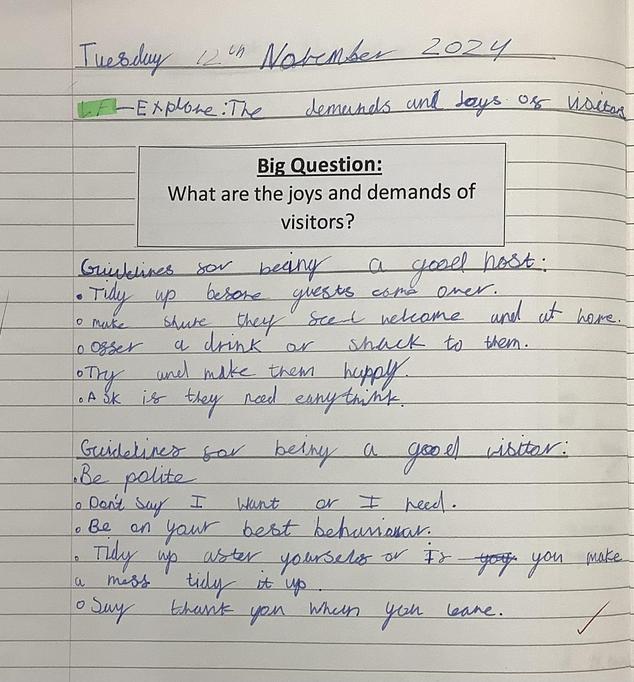 Tuesday 12th November 2024
LF-Explore: The demands and Joys of visitors
Big Question:
What are the joys and demands of
visitors?
Guidelines for being a good host:
• Tidy up before guests come over.
• make shure they feel welcome and at home.
• Offer a drink or snack to them.
• Try and make them happy.
• Ask if they need eanythink.
Guidelines for being a good visitor:
• Be polite
• Don't say I want or I need.
• Be on your best behaviour.
• Tidy up after yourself or If you you make
a mess tidy it up.
• Say thank you when you leave.